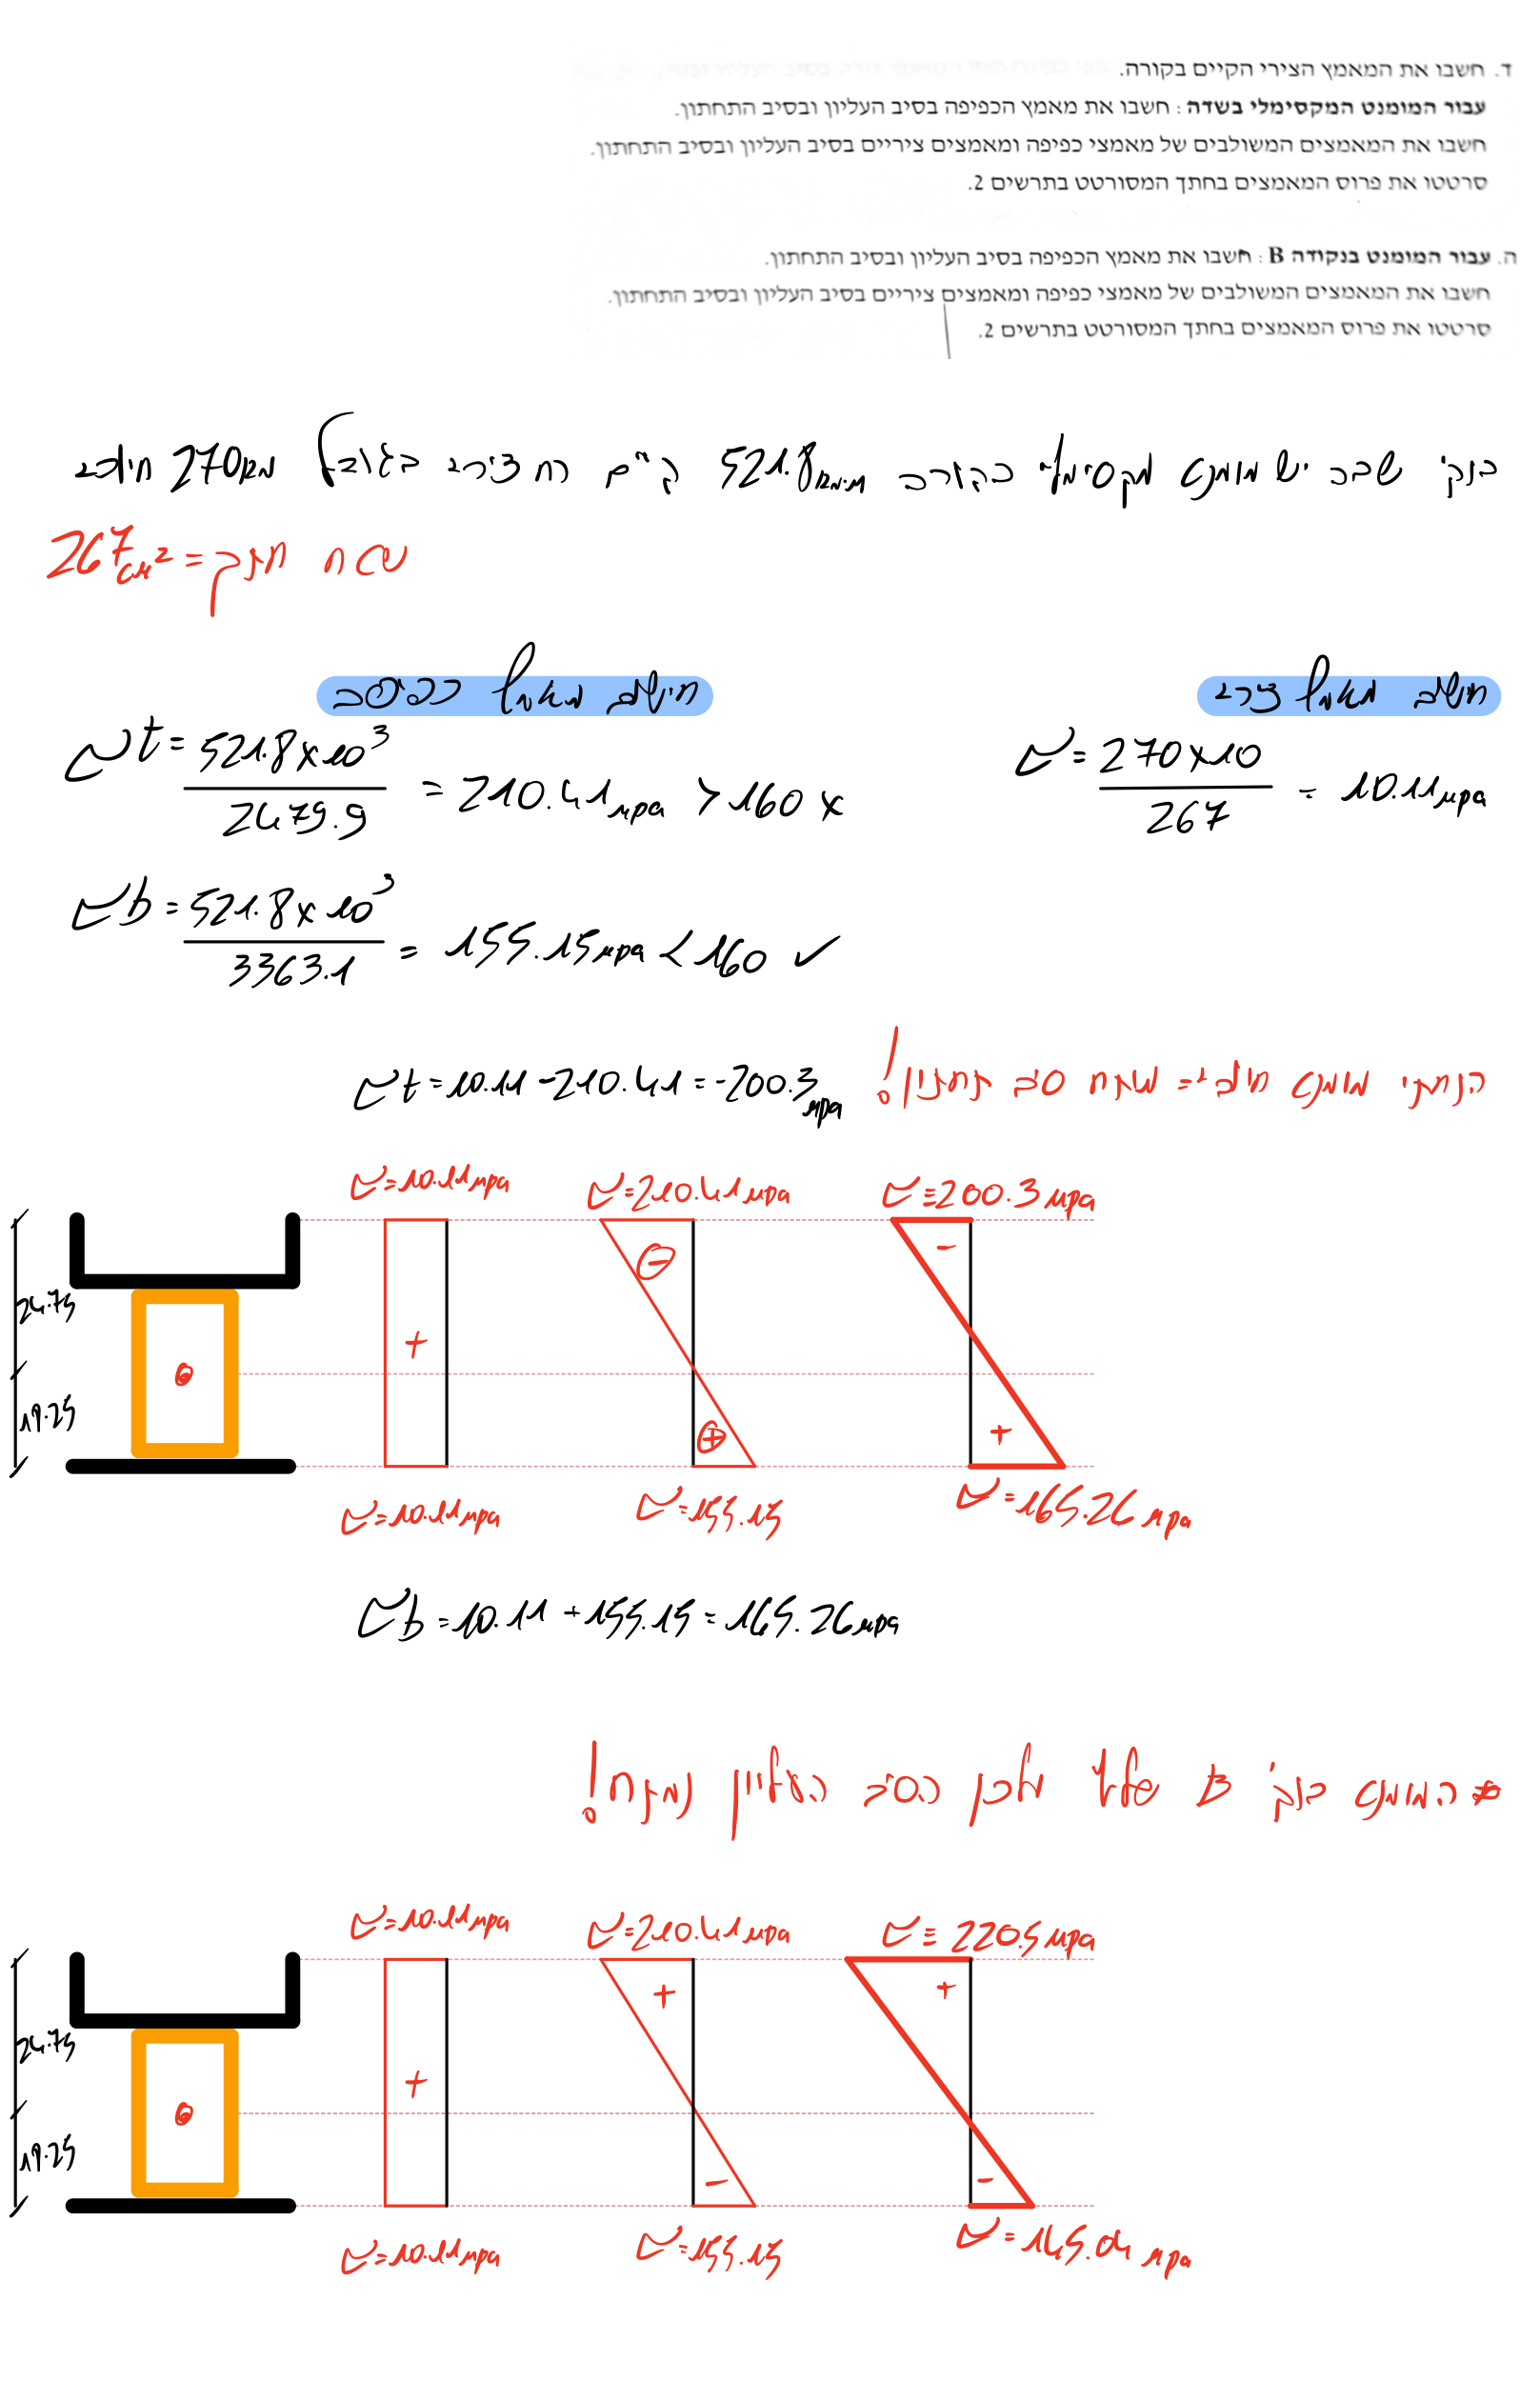 ד. חשבו את המאמץ הצירי הקיים בקורה.
עבור המומנט המקסימלי בשדה : חשבו את מאמץ הכפיפה בסיב העליון ובסיב התחתון.
חשבו את המאמצים המשולבים של מאמצי כפיפה ומאמצים ציריים בסיב העליון ובסיב התחתון.
סרטטו את פרוס המאמצים בחתך המסורטט בתרשים 2.
ה. עבור המומנט בנקודה B : חשבו את מאמץ הכפיפה בסיב העליון ובסיב התחתון.
חשבו את המאמצים המשולבים של מאמצי כפיפה ומאמצים ציריים בסיב העליון ובסיב התחתון.
סרטטו את פרוס המאמצים בחתך המסורטט בתרשים 2.
בנק' שבה יש מומנט מקסימלי בקורה 521.8 קנ.מ קיים כח צירי בגודל 270 קנ חיובי
שטח חתך = 267 cм²
חישוב מאמץ צירי
σ = 270x10 / 267 = 10.11 мpa
חישוב מאמץ כפיפה
σt = 521.8x10³ / 2479.9 = 210.41 мpa > 160 x
σb = 521.8x10³ / 3363.1 = 155.15 мpa < 160 ✓
הנחתי מומנט חיובי = מתח סיב תחתון!
σt = 10.11 - 210.41 = -200.3 мpa
σ = 10.11 мpa σ = 210.41 мpa σ = 200.3 мpa
- -
24.75
+
19.25
+ +
σ = 10.11 мpa σ = 155.15 σ = 165.26 мpa
σb = 10.11 + 155.15 = 165.26 мpa
* המומנט בנק' B שלילי ולכן הסיב העליון נמתח!
σ = 10.11 мpa σ = 210.41 мpa σ = 220.5 мpa
+ +
24.75
+
19.25
- -
σ = 10.11 мpa σ = 155.15 σ = 145.04 мpa